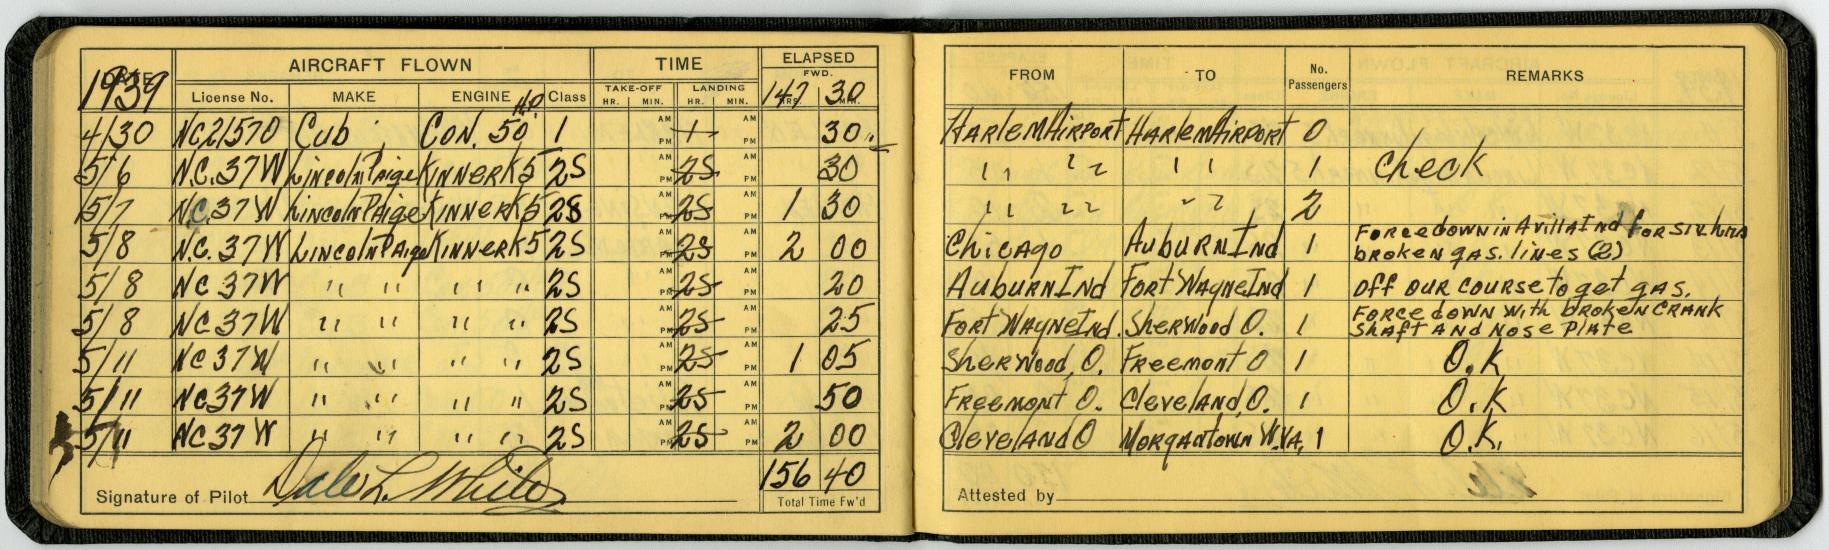 1939 DATE AIRCRAFT FLOWN TIME ELAPSED
FWD.
License No. MAKE ENGINE H.P. Class TAKE-OFF HR. MIN. LANDING HR. MIN. 147 HRS. 30 MIN.
4/30 NC21570 Cub CON. 50 1 AM PM 1 AM PM 30
5/6 N.C.37W Lincoln Paige Kinner K5 2S PM 2S AM PM 30
5/7 N.C.37W Lincoln Paige Kinner K5 2S AM PM 2S AM PM 1 30
5/8 N.C.37W Lincoln Paige Kinner K5 2S AM PM 2S AM PM 2 00
5/8 NC 37W " " " " 2S AM PM 2S AM PM 20
5/8 NC 37W " " " " 2S AM PM 2S AM PM 25
5/11 NC 37W " " " " 2S AM PM 2S AM PM 1 05
5/11 NC37W " " " " 2S AM PM 2S AM PM 50
5/11 NC37W " " " " 2S AM PM 2S AM PM 2 00
Signature of Pilot Dale L. White 156 40
Total Time Fw'd
FROM TO No. Passengers REMARKS
Harlem Airport Harlem Airport 0
" " " " 1 Check
" " " " 2
Chicago Auburn Ind 1 Force down in Avilla Ind for six hrs
broken gas. lines (2)
Auburn Ind Fort Wayne Ind 1 off our course to get gas.
Fort Wayne Ind. Sherwood O. 1 Force down with broken crank
shaft and nose plate
Sherwood, O. Freemont O 1 O.K
Freemont O. Cleveland, O. 1 O.K
Cleveland O Morgantown W.VA. 1 O.K.
Attested by